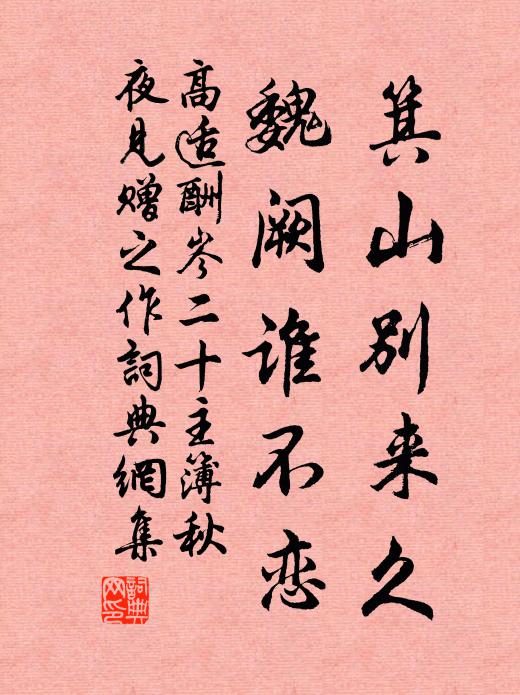 箕山别来久
魏阙谁不恋
高适酬岑二十主簿秋
夜見赠之作詞典網集
詞典
网印